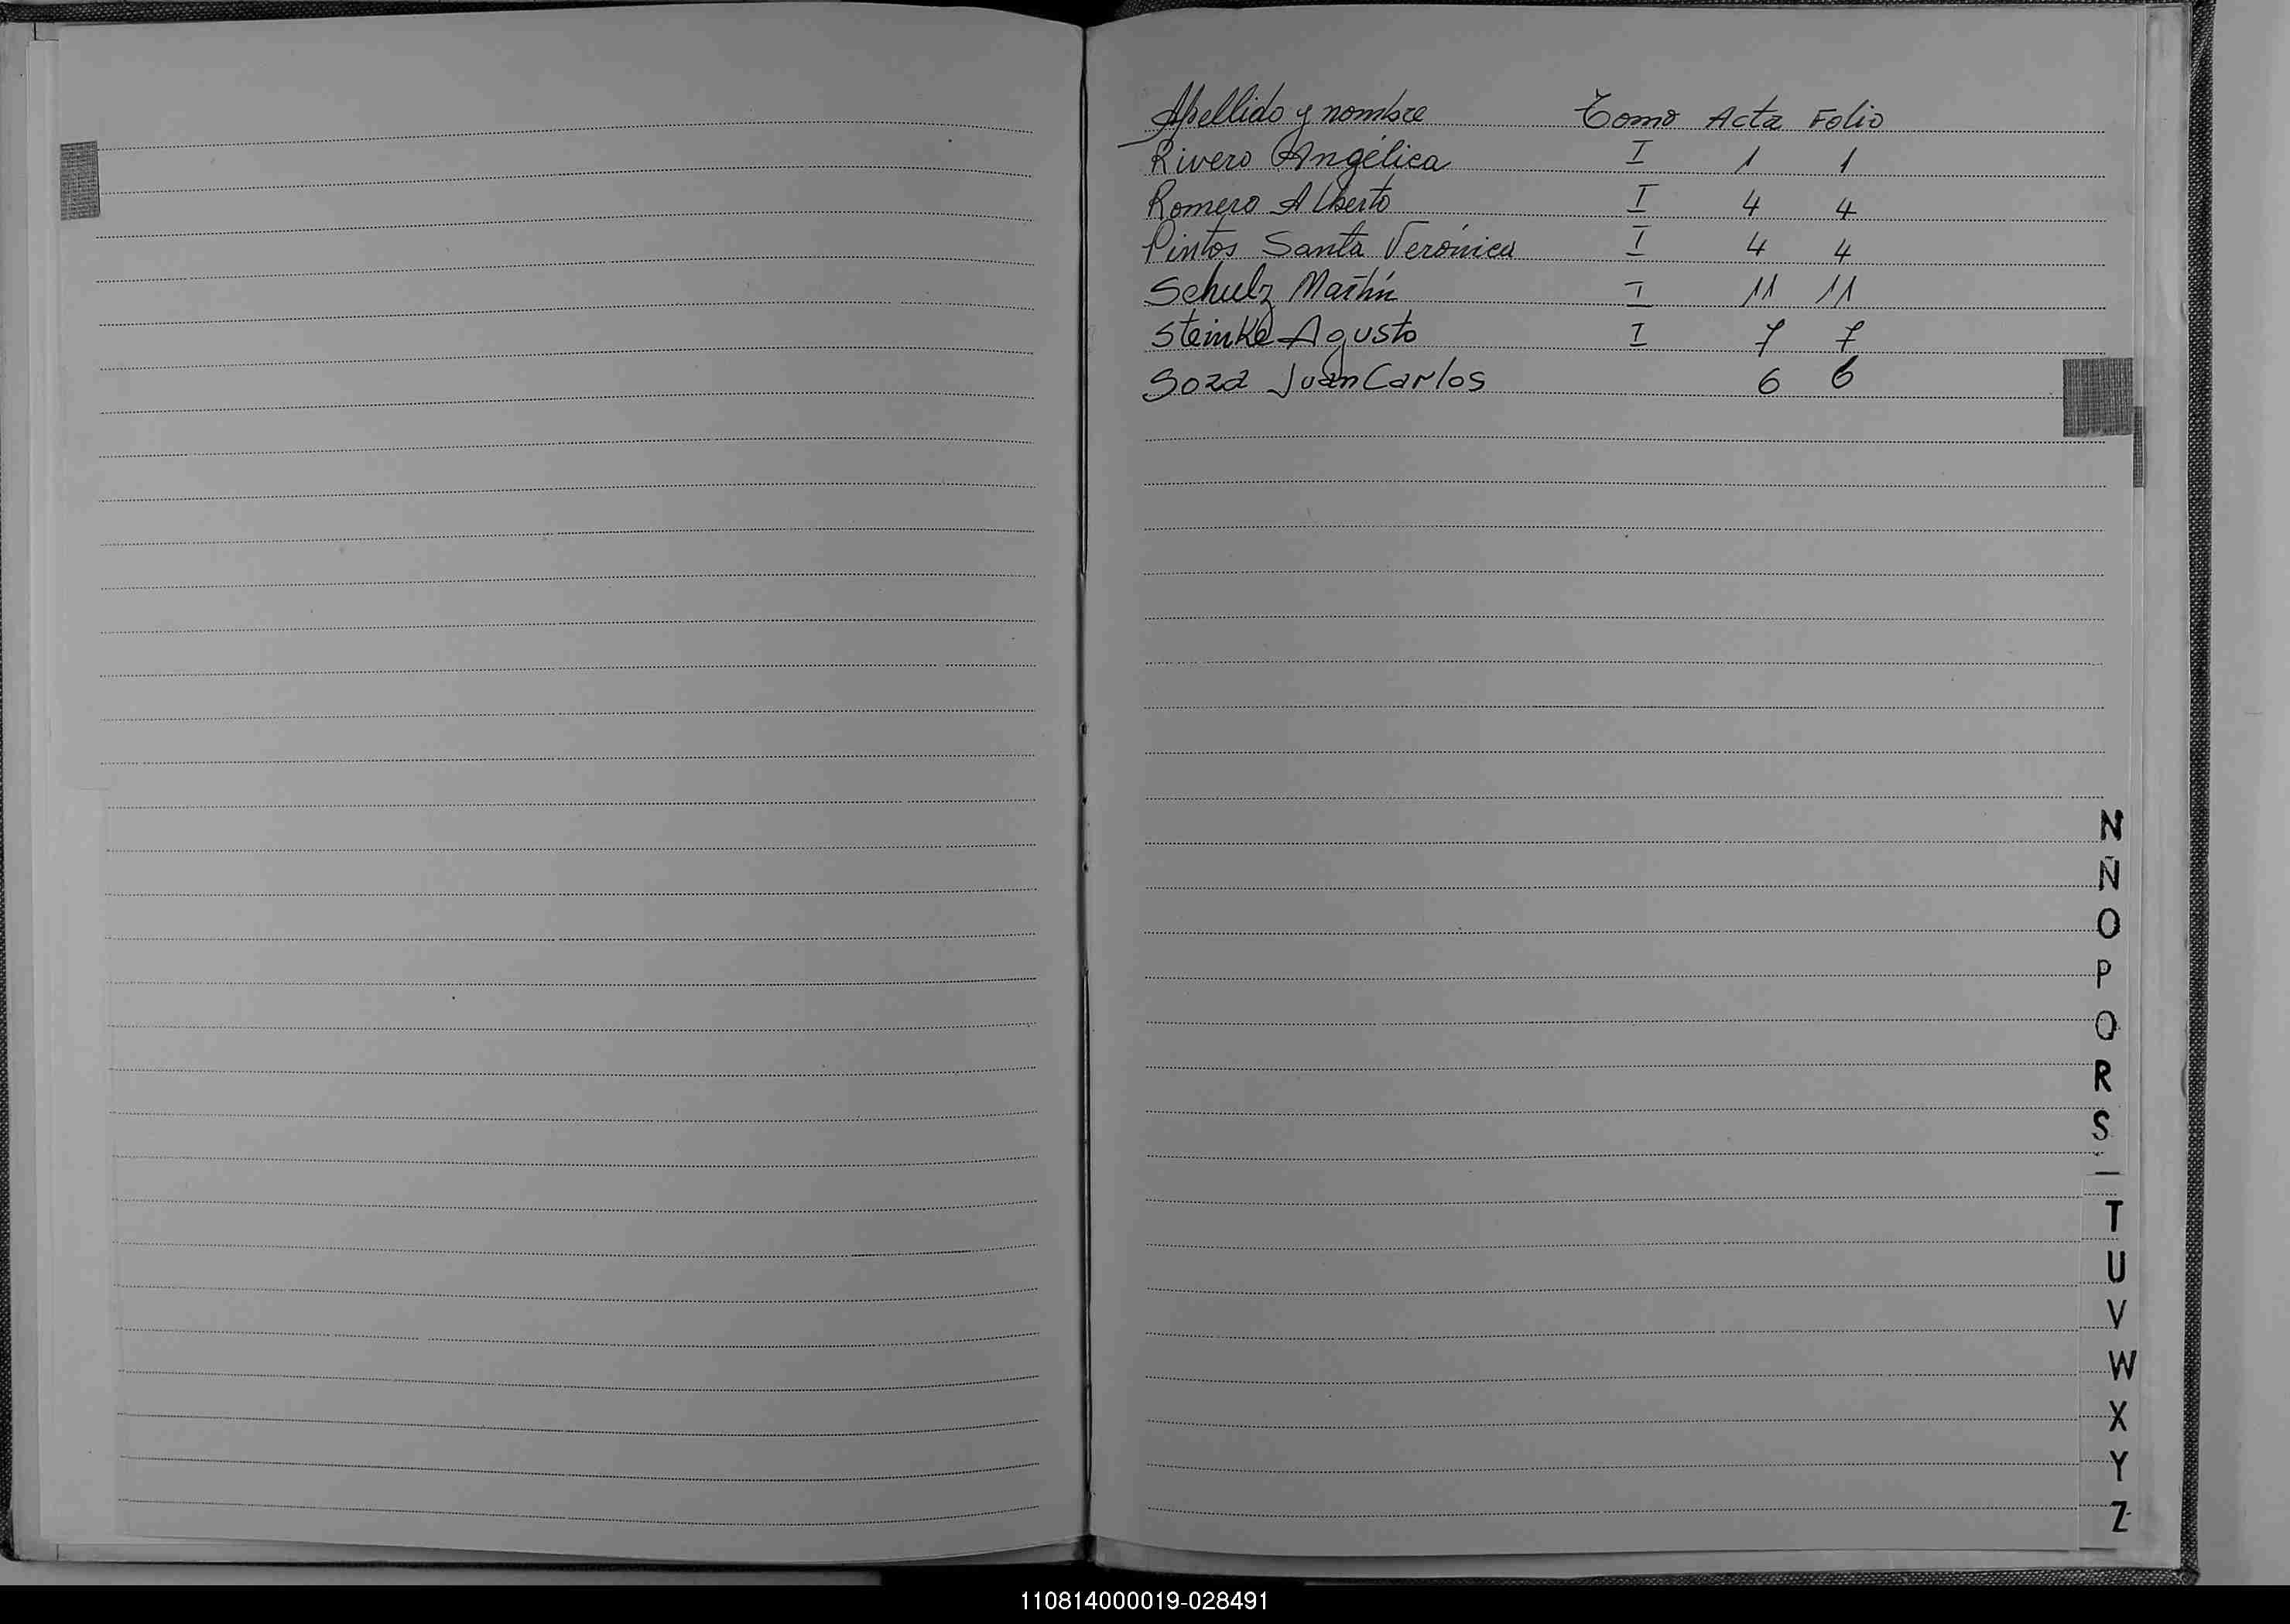 Apellido y nombre Tomo Acta Folio
Rivero Angélica I 1 1
Romero Alberto I 4 4
Pintos Santa Verónica I 4 4
Schulz Martín I 11 11
Steinke Agusto I 7 7
Soza Juan Carlos 6 6
N
Ñ
O
P
Q
R
S
T
U
V
W
X
Y
Z
110814000019-028491